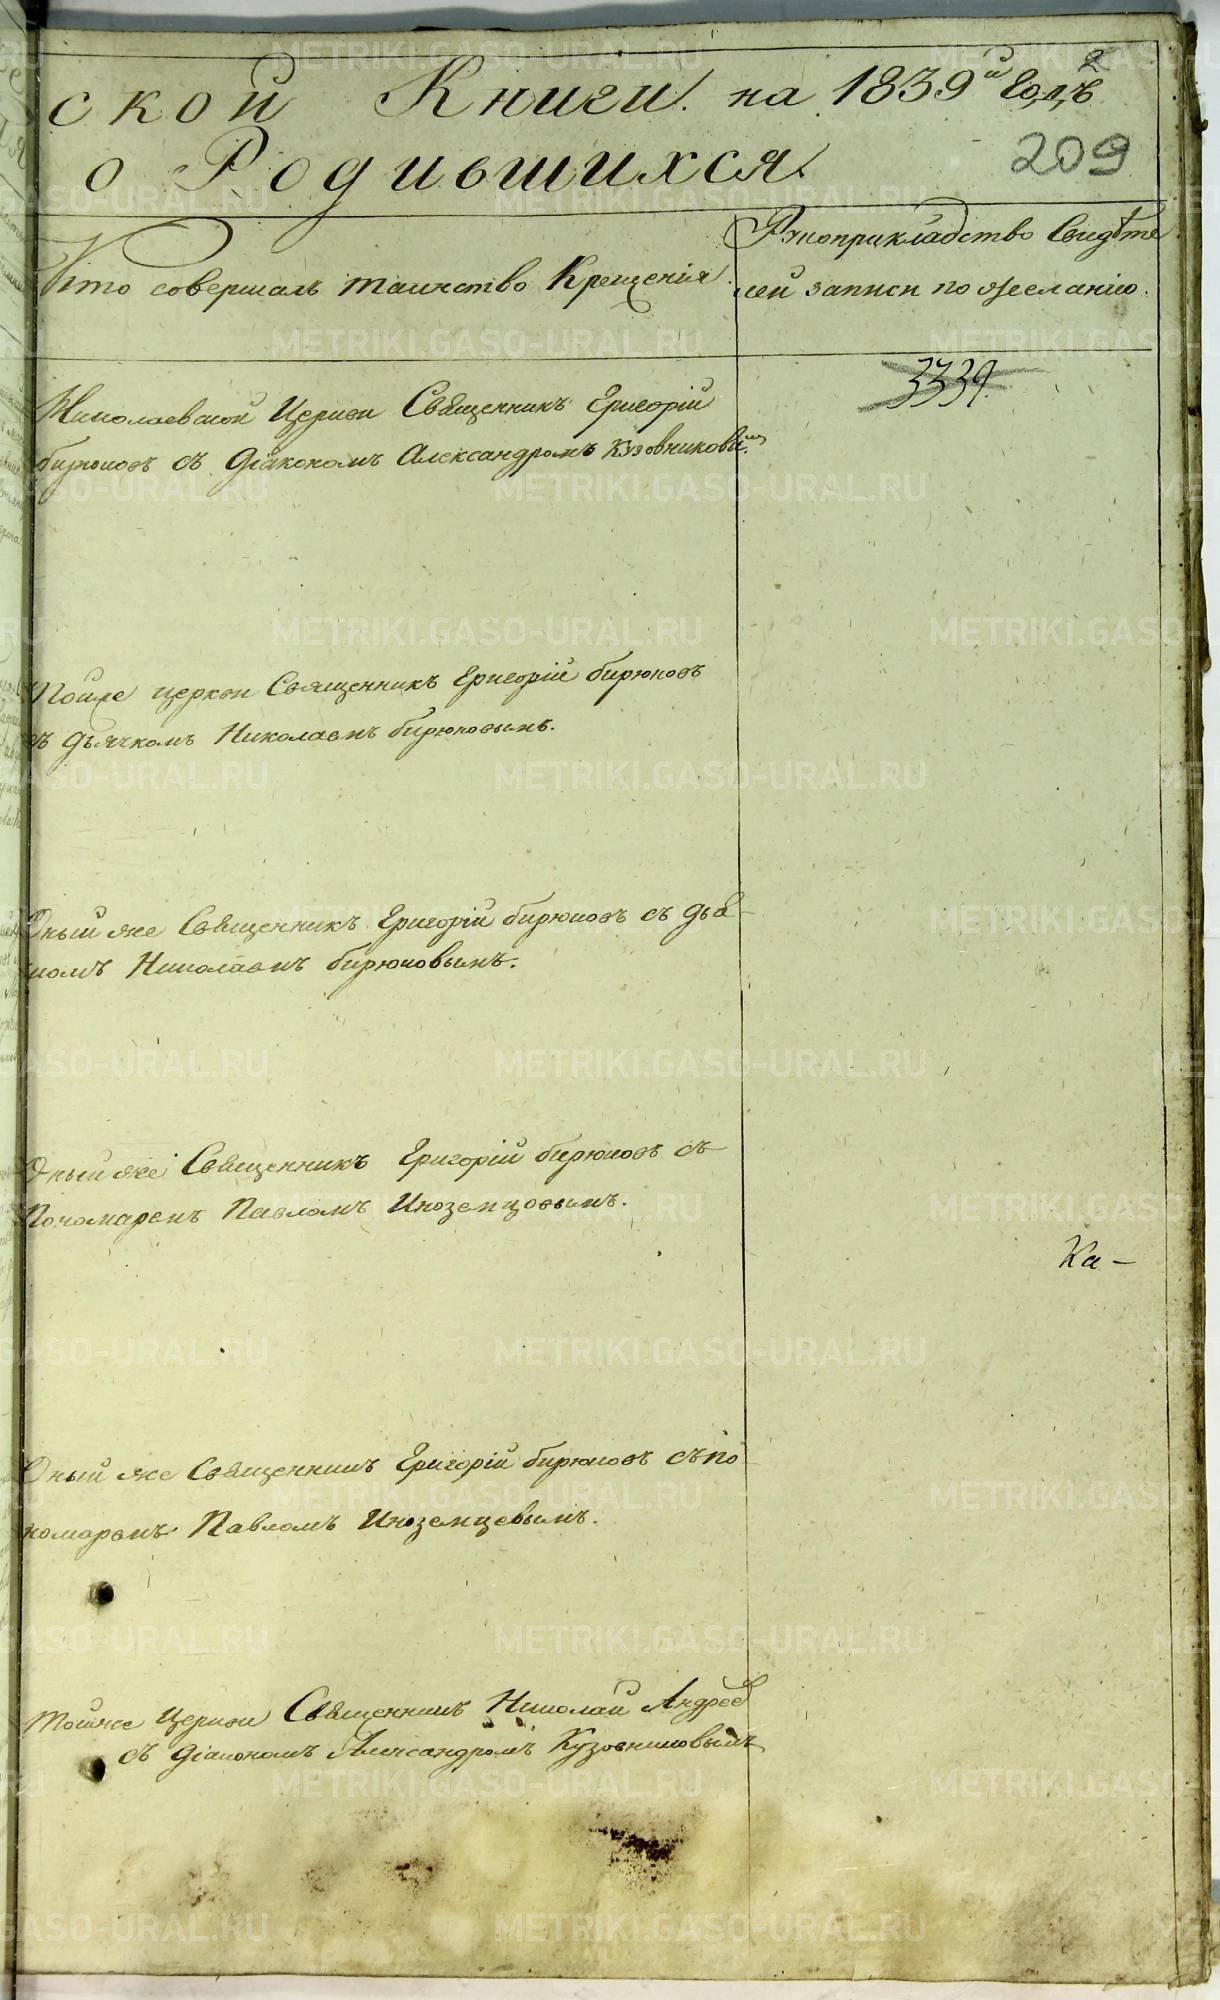 ской Книги на 1839й Годъ
2
209
о Родившихся
Кто совершалъ таинство Крещенія
Рукоприкладство Свидѣте
лей записи по желанію.
3339.
Николаевской Церкви Священникъ Григорій
бирюковъ съ Діакономъ Александромъ Кузовниковымъ
Тойже церкви Священникъ Григорій бирюковъ
съ дьячкомъ Николаемъ бирюковымъ.
Оный же Священникъ Григорій бирюковъ съ дья-
комъ Николаемъ бирюковымъ.
Оный же Священникъ Григорій бирюковъ съ
Пономаремъ Павломъ Иноземцовымъ.
Ка-
Оный же Священникъ Григорій бирюковъ съ по
номаремъ Павломъ Иноземцевымъ.
Тойже Церкви Священникъ Николай Андреев
съ діакономъ Александромъ Кузовниковымъ
METRIKI.GASO-URAL.RU